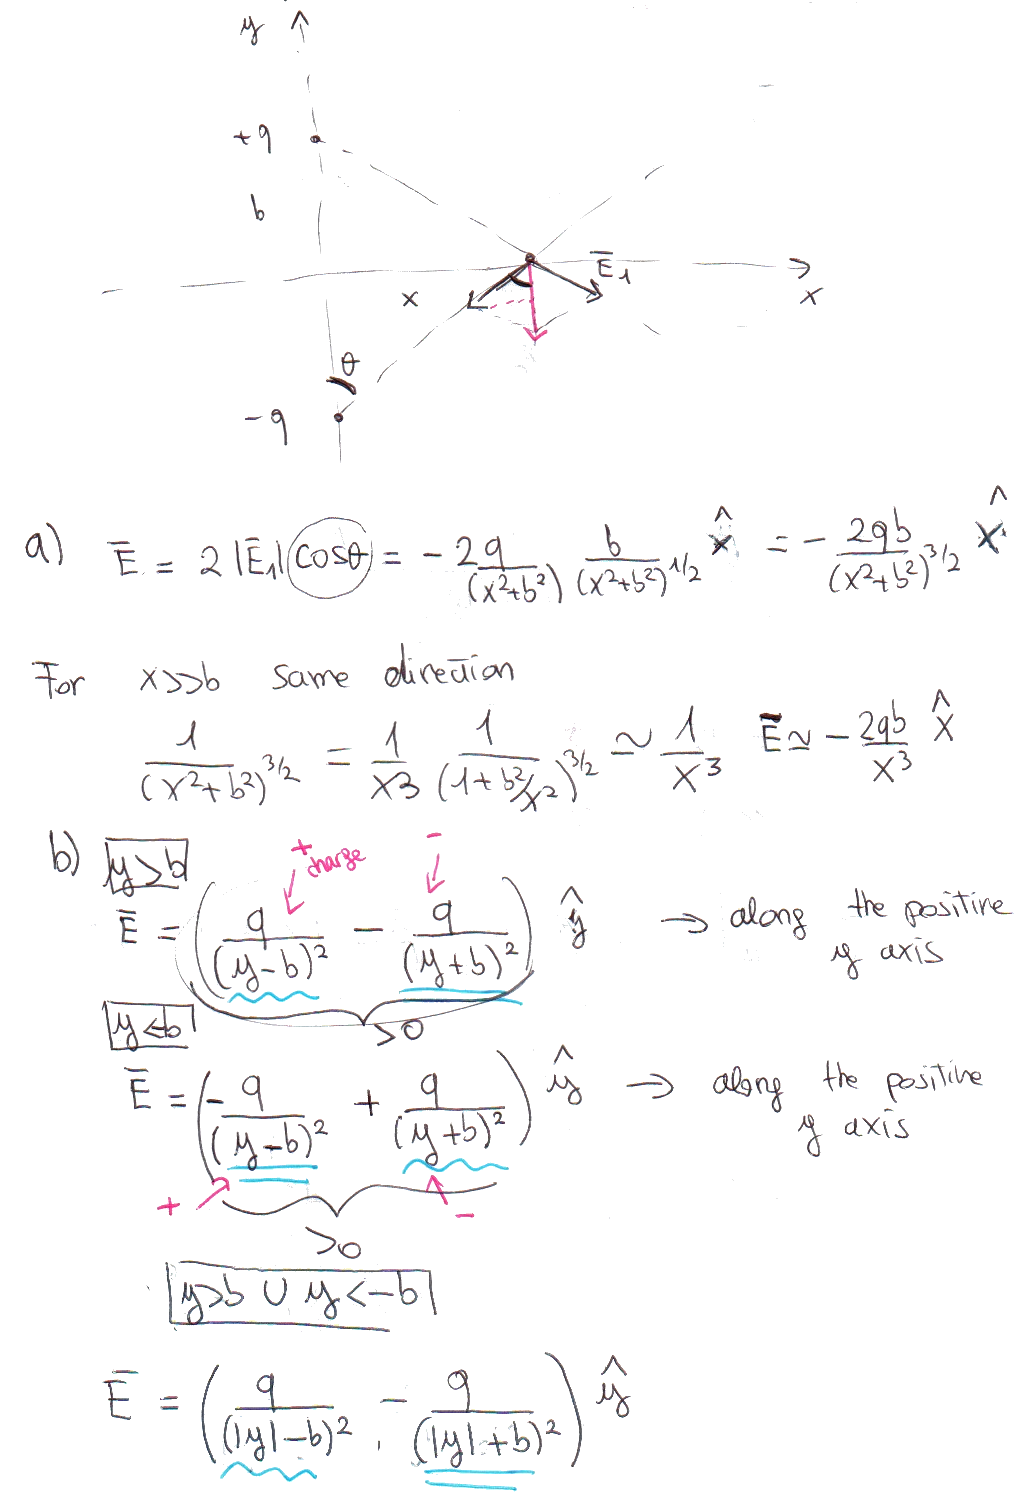 y
+q
b
Ē₁
x
x
θ
-q
a) Ē = 2 |Ē₁| cosθ = - 2q/(x²+b²) b/(x²+b²)^1/2 x̂ = - 2qb/(x²+b²)^3/2 x̂
For x>>b same direction
1/(x²+b²)^3/2 = 1/x3 1/(1+b²/x²)^3/2 ≃ 1/x³ Ē ≃ - 2qb/x³ x̂
b) y>b
+ charge
-
Ē = (q/(y-b)² - q/(y+b)²) ŷ → along the positive
y axis
>0
y<-b
Ē = (- q/(y-b)² + q/(y+b)²) ŷ → along the positive
y axis
+
-
>0
y>b ∪ y<-b
Ē = (q/(|y|-b)² - q/(|y|+b)²) ŷ